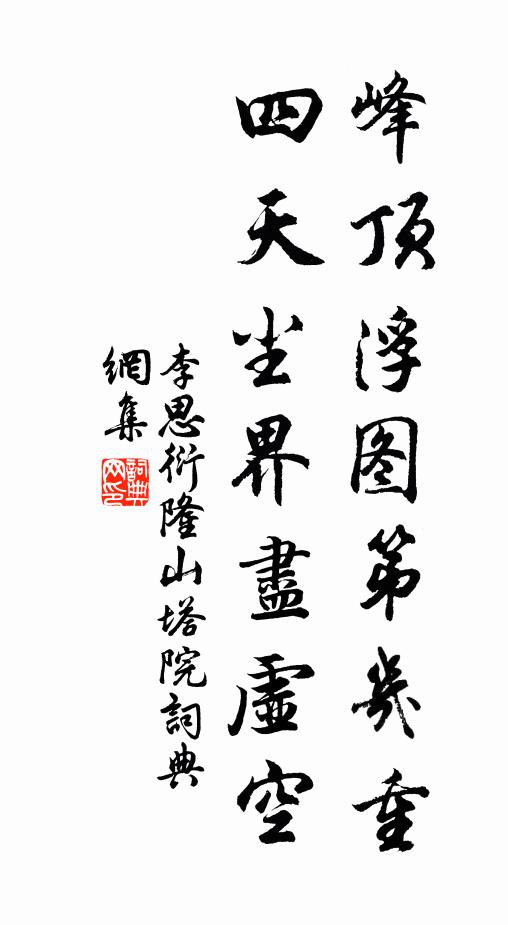 峰顶浮图第幾重
四天尘界盡虛空
李思衍隆山塔院詞典
網集
詞典网印